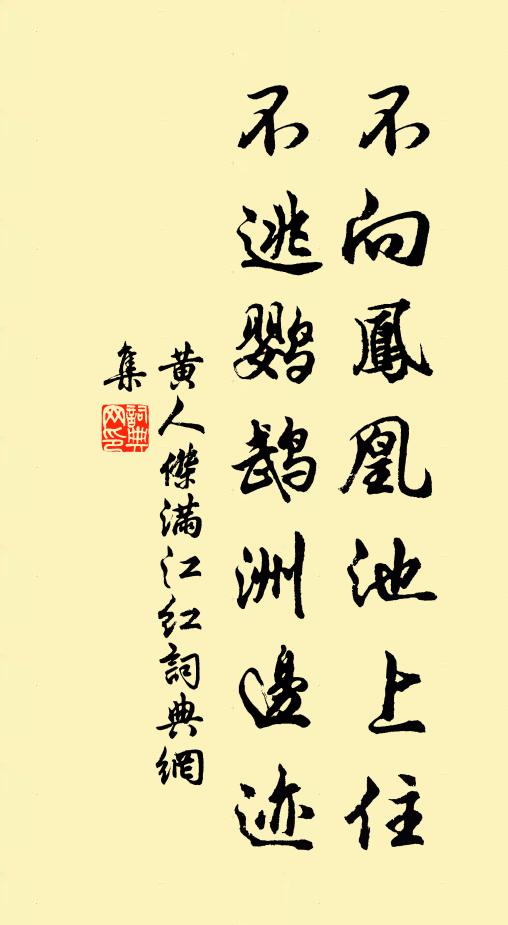 不向鳳凰池上住
不逃鸚鵡洲邊迹
黄人傑滿江红詞典網
集
詞典網印